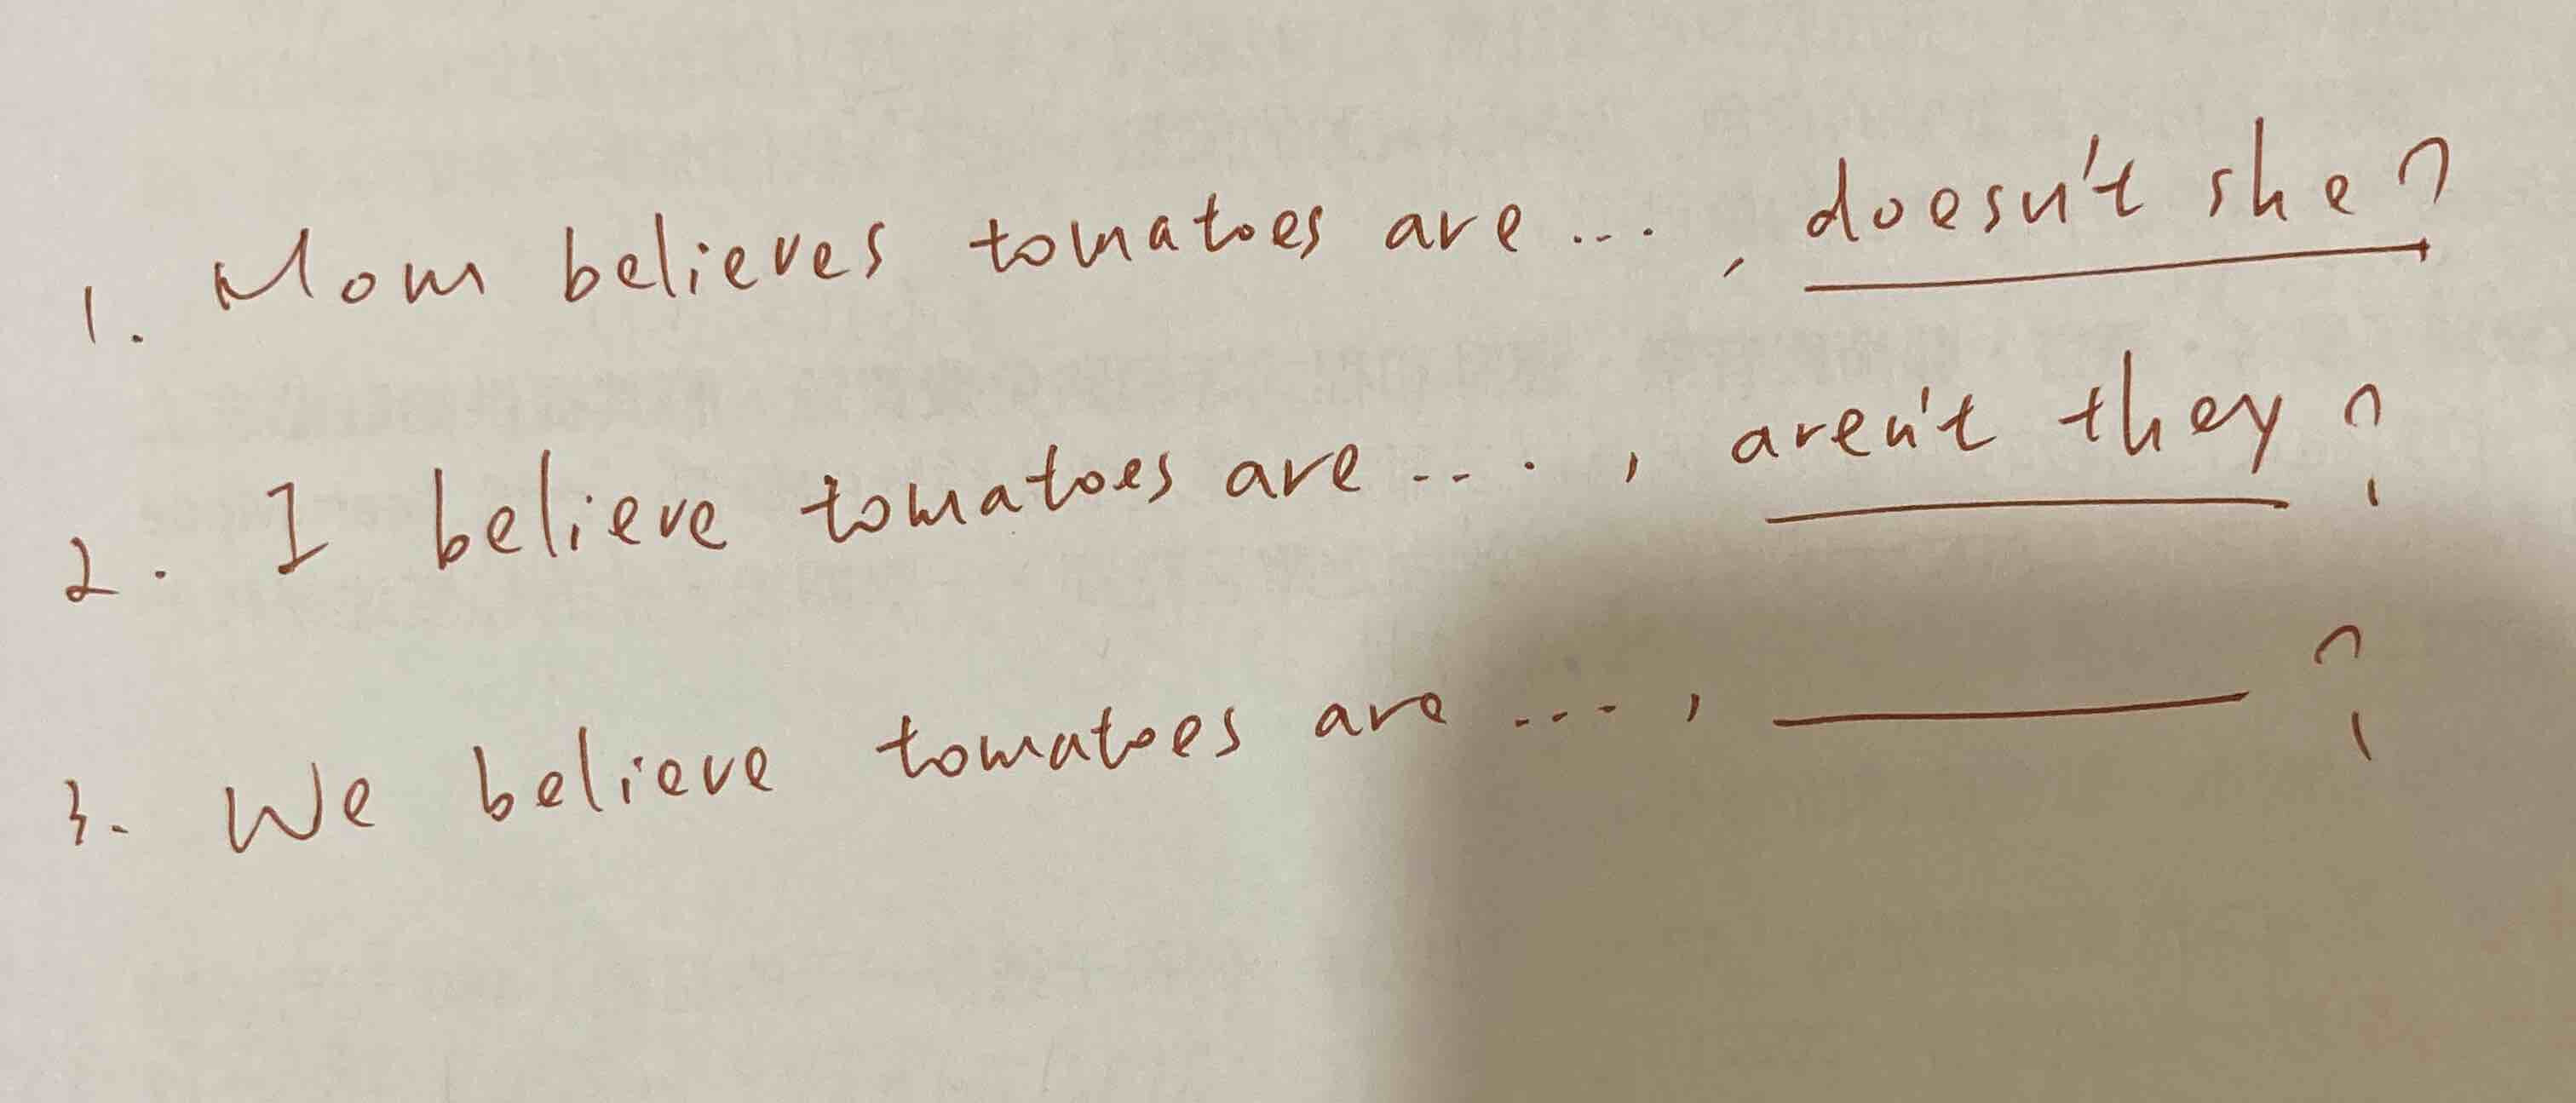 1. Mom believes tomatoes are ..., doesn't she?
2. I believe tomatoes are ...., aren't they?
3. We believe tomatoes are ...., ______?